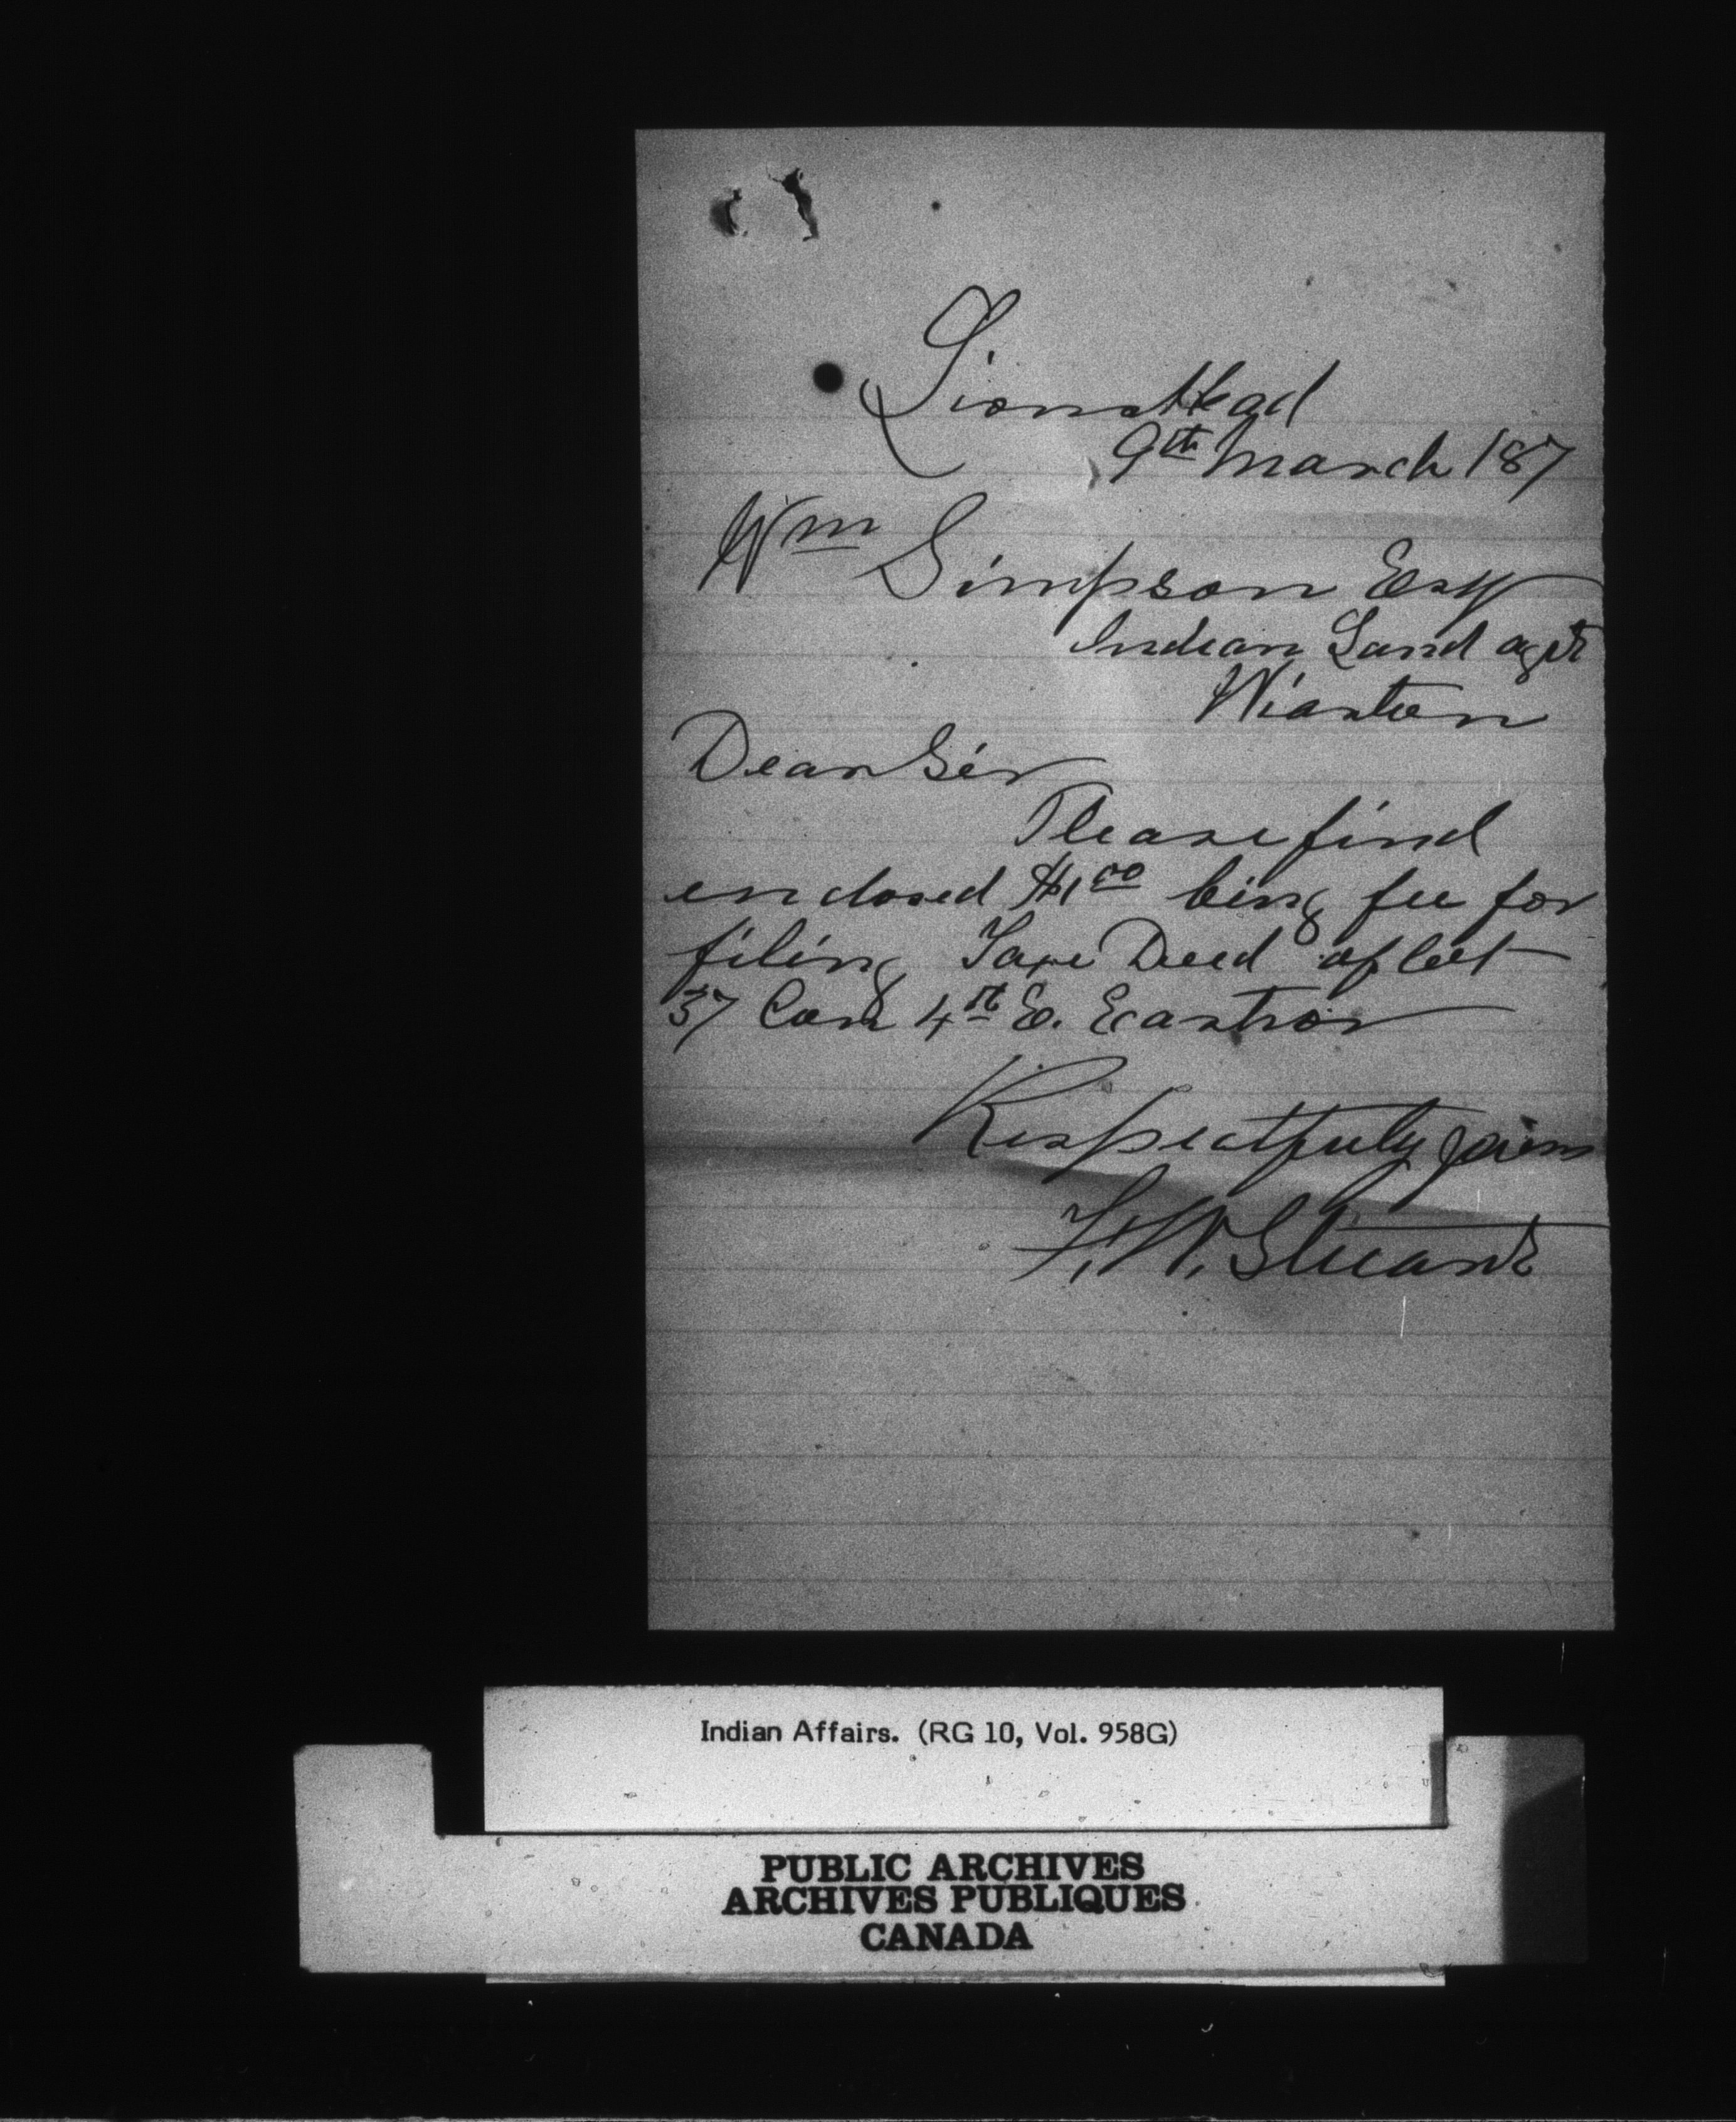 Lions Head
9th March 187
Wm Simpson Esq
Indian Land agt
Wiarton
Dear Sir
Please find
enclosed $1.00 being fee for
filing Taxe Deed of lot
37 Con 4th E. Eastnor
Respectfuly yours
F. W. Stuart
Indian Affairs. (RG 10, Vol. 958G)
PUBLIC ARCHIVES
ARCHIVES PUBLIQUES
CANADA